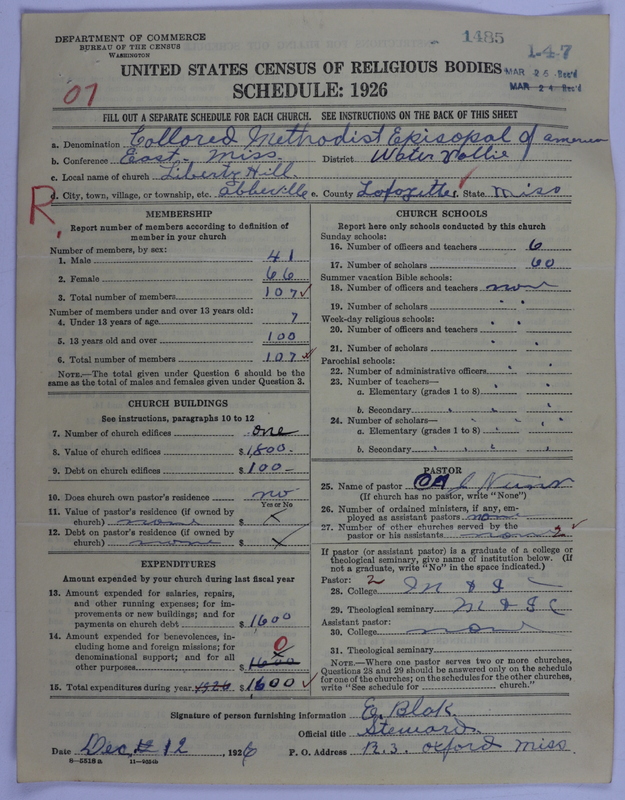 DEPARTMENT OF COMMERCE
BUREAU OF THE CENSUS
WASHINGTON
1485
1-4-7
MAR 26 Rec'd
MAR 24 Rec'd
07
UNITED STATES CENSUS OF RELIGIOUS BODIES
SCHEDULE: 1926
FILL OUT A SEPARATE SCHEDULE FOR EACH CHURCH. SEE INSTRUCTIONS ON THE BACK OF THIS SHEET
a. Denomination Collored Methodist Episcopal of america
b. Conference East. Miss. District Water Vallie
c. Local name of church Liberty Hill
R. d. City, town, village, or township, etc. Abbeville e. County Lafayette f. State Miss
MEMBERSHIP
Report number of members according to definition of member in your church
Number of members, by sex:
1. Male 41
2. Female 66
3. Total number of members 107 ✓
Number of members under and over 13 years old:
4. Under 13 years of age 7
5. 13 years old and over 100
6. Total number of members 107
NOTE.—The total given under Question 6 should be the same as the total of males and females given under Question 3.
CHURCH BUILDINGS
See instructions, paragraphs 10 to 12
7. Number of church edifices one
8. Value of church edifices $1,800.
9. Debt on church edifices $100—
10. Does church own pastor's residence no
Yes or No
11. Value of pastor's residence (if owned by church) none $ x
12. Debt on pastor's residence (if owned by church) none $ x
EXPENDITURES
Amount expended by your church during last fiscal year
13. Amount expended for salaries, repairs, and other running expenses; for improvements or new buildings; and for payments on church debt $1600
14. Amount expended for benevolences, including home and foreign missions; for denominational support; and for all other purposes 0 $1600
15. Total expenditures during year 1926 $1600 ✓
CHURCH SCHOOLS
Report here only schools conducted by this church
Sunday schools:
16. Number of officers and teachers 6
17. Number of scholars 60
Summer vacation Bible schools:
18. Number of officers and teachers none
19. Number of scholars " "
Week-day religious schools:
20. Number of officers and teachers " "
21. Number of scholars " "
Parochial schools:
22. Number of administrative officers " "
23. Number of teachers—
a. Elementary (grades 1 to 8) " "
b. Secondary " "
24. Number of scholars—
a. Elementary (grades 1 to 8) " "
b. Secondary " "
PASTOR
25. Name of pastor
(If church has no pastor, write "None")
26. Number of ordained ministers, if any, employed as assistant pastors none
27. Number of other churches served by the pastor or his assistants none 2 ✓
If pastor (or assistant pastor) is a graduate of a college or theological seminary, give name of institution below. (If not a graduate, write "No" in the space indicated.)
Pastor: 2
28. College M & I
29. Theological seminary M & I C
Assistant pastor:
30. College none
31. Theological seminary
NOTE.—Where one pastor serves two or more churches, Questions 28 and 29 should be answered only on the schedule for one of the churches; on the schedules for the other churches, write "See schedule for church."
Signature of person furnishing information E. Blak
Official title Steward
Date Dec 12, 1926 P. O. Address R. 3. Oxford Miss.
8—5518 a 11—9204b